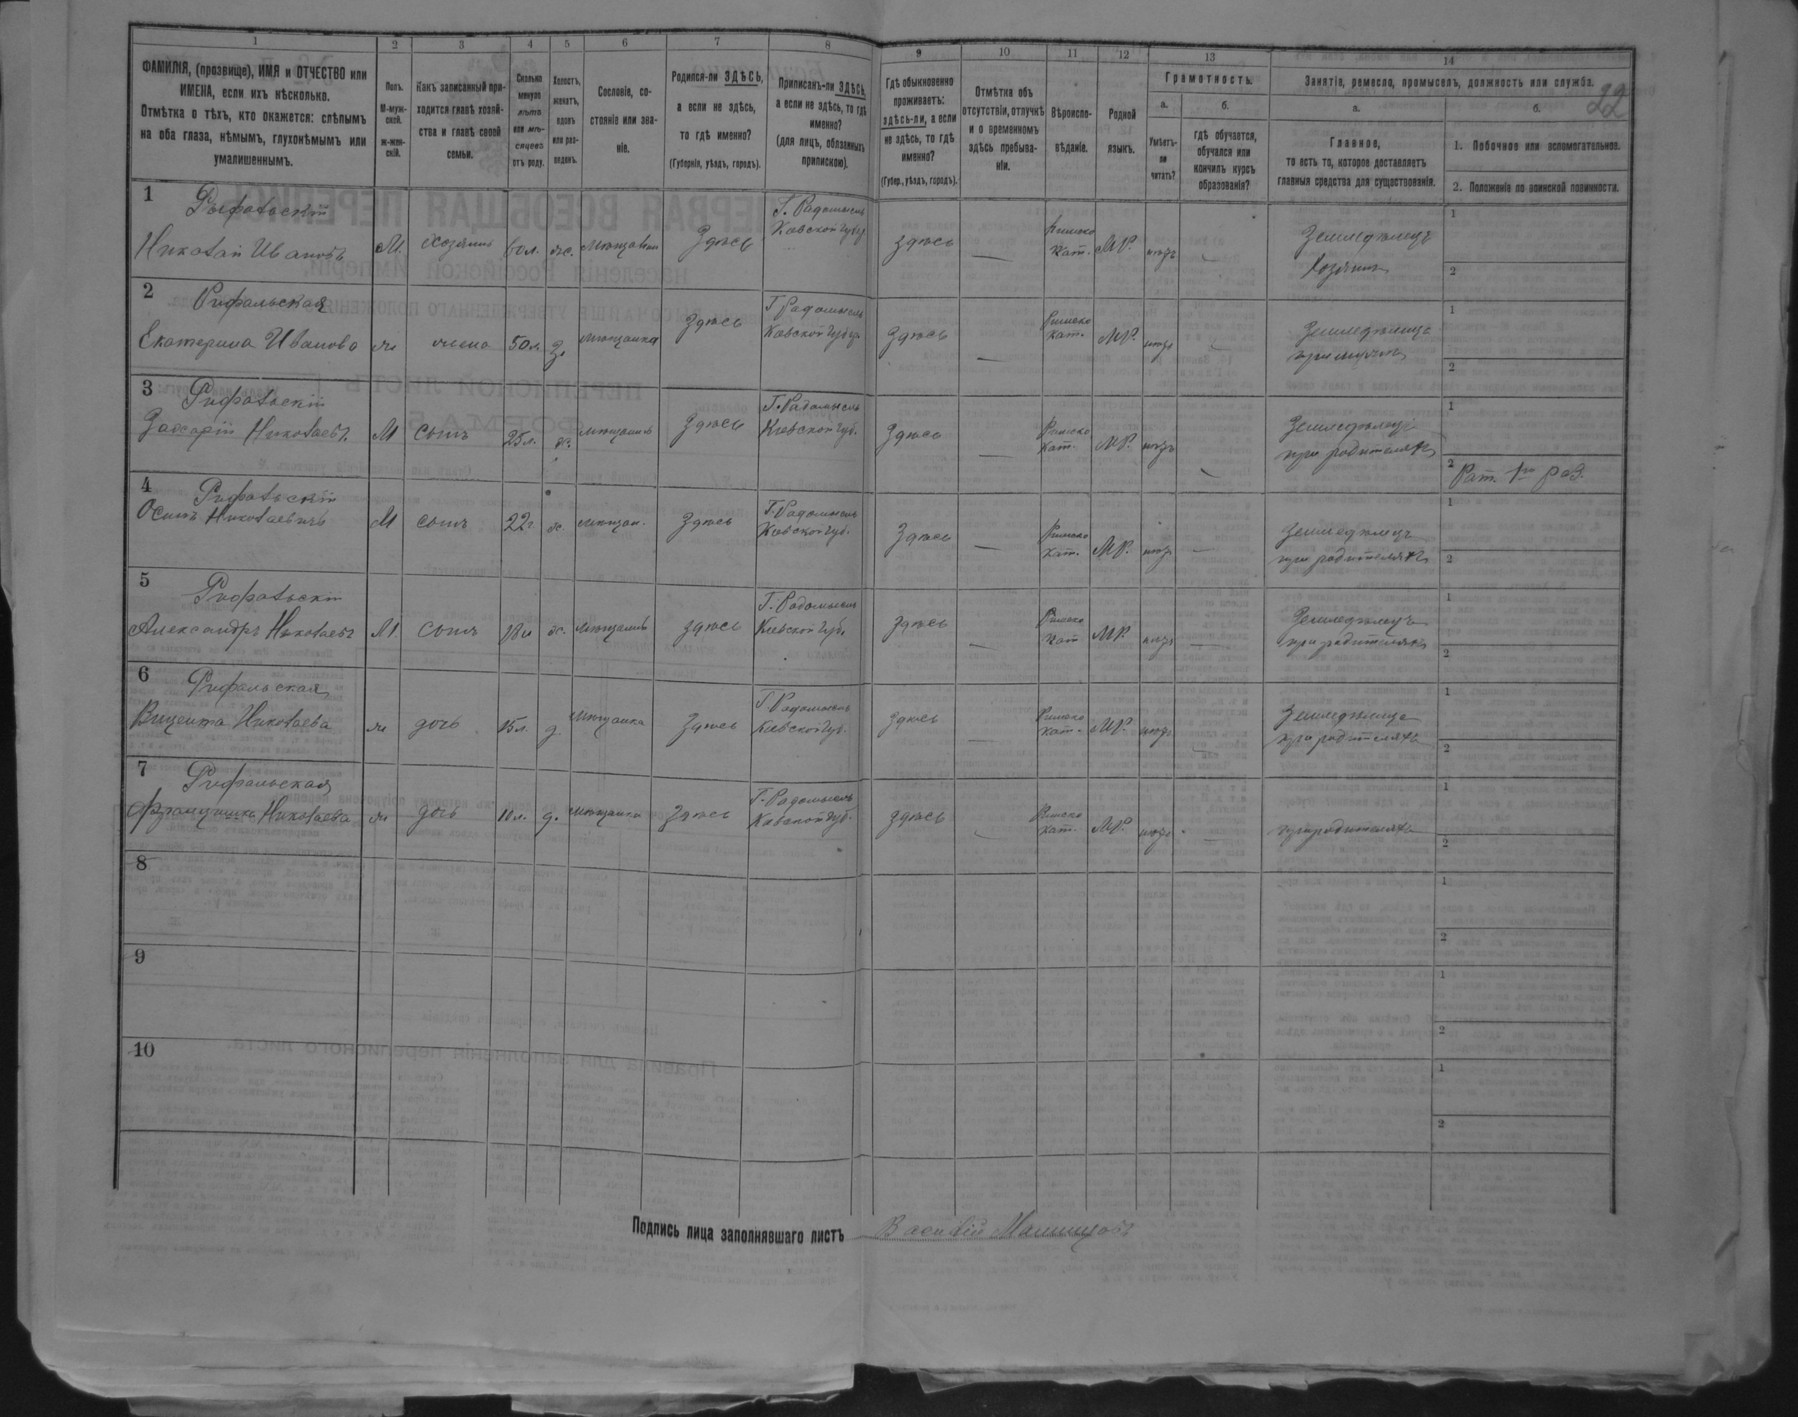 1 2 3 4 5 6 7 8 9 10 11 12 13 14
22
ФАМИЛІЯ, (прозвище), ИМЯ и ОТЧЕСТВО или
ИМЕНА, если ихъ нѣсколько.
Отмѣтка о тѣхъ, кто окажется: слѣпымъ
на оба глаза, нѣмымъ, глухонѣмымъ или
умалишеннымъ.
Полъ.
М-муж-
ской.
Ж-жен-
скій.
Какъ записанный при-
ходится главѣ хозяй-
ства и главѣ своей
семьи.
Сколько
минуло
лѣтъ
или мѣ-
сяцевъ
отъ роду.
Холостъ,
женатъ,
вдовъ
или раз-
веденъ.
Сословіе, со-
стояніе или зва-
ніе.
Родился-ли ЗДѢСЬ,
а если не здѣсь,
то гдѣ именно?
(Губернія, уѣздъ, городъ).
Приписанъ-ли ЗДѢСЬ,
а если не здѣсь, то гдѣ
именно?
(для лицъ, обязанныхъ
припискою).
Гдѣ обыкновенно
проживаетъ:
здѣсь-ли, а если
не здѣсь, то гдѣ
именно?
(Губер., уѣздъ, городъ).
Отмѣтка объ
отсутствіи, отлучкѣ
и о временномъ
здѣсь пребыва-
ніи.
Вѣроиспо-
вѣданіе.
Родной
языкъ.
Грамотность.
а.
Умѣетъ-
ли
читать?
б.
гдѣ обучается,
обучался или
кончилъ курсъ
образованія?
Занятіе, ремесло, промыселъ, должность или служба.
а.
Главное,
то есть то, которое доставляетъ
главныя средства для существованія.
б.
1. Побочное или вспомогательное.
2. Положеніе по воинской повинности.
1
Рифальскій
Николай Ивановъ
М.
хозяинъ
ж.
Здѣсь
Г. Радомысль
Кіевской губ.
здѣсь
—
Римско
Кат.
нѣтъ
—
Земледѣлецъ
Хозяинъ
1
2
2
Рифальская
Екатерина Иванова
ж
жена
50 л.
З.
мѣщанка
Здѣсь
Г. Радомысль
Кіевской губ.
Здѣсь
—
Римско
Кат.
нѣтъ
—
Земледѣлица
при мужѣ
1
2
3
Рифальскій
Николаевъ
М
сынъ
25 л.
ж.
мѣщанинъ
Здѣсь
Г. Радомысль
Кіевской губ.
Здѣсь
—
Римско
Кат.
нѣтъ
—
Земледѣлецъ
при родителяхъ
1
2 Рат. 1го раз.
4
Рифальскій
Осипъ Николаевичъ
М
сынъ
22 г.
мѣщан.
Здѣсь
Г. Радомысль
Кіевской губ.
Здѣсь
—
Римско
Кат.
нѣтъ
—
Земледѣлецъ
при родителяхъ
1
2
5
Рифальскій
Александръ Николаевъ
М
сынъ
18 л
мѣщанинъ
здѣсь
Г. Радомысль
Кіевской губ.
здѣсь
—
Римско
Кат
нѣтъ
—
Земледѣлецъ
при родителяхъ
1
2
6
Рифальская
Винцента Николаева
ж
дочь
15 л.
д.
мѣщанка
Здѣсь
Г. Радомысль
Кіевской губ.
здѣсь
—
Римско
Кат.
нѣтъ
—
Земледѣлица
при родителяхъ
1
2
7
Рифальская
Францишка Николаева
ж
дочь
10 л.
д.
мѣщанка
Здѣсь
Г. Радомысль
Кіевской губ.
здѣсь
—
Римско
Кат.
нѣтъ
—
при родителяхъ
1
2
8
1
2
9
1
2
10
1
2
Подпись лица заполнявшаго листъ Василій